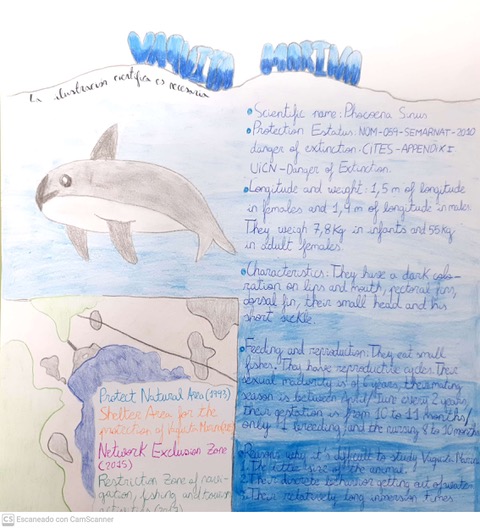 VAQUITA MARINA
La ilustración científica es necesaria
• Scientific name: Phocoena Sinus
• Protection Estatus: NOM-059-SEMARNAT-2010
danger of extinction. CITES-APPENDIX I
UICN-Danger of Extinction.
• Longitude and weight: 1,5 m of longitude
in females and 1,4 m of longitude in males.
They weigh 7,8 kg in infants and 55 kg
in adult females.
• Characteristics: They have a dark colo-
ration on lips and mouth, pectoral fins,
dorsal fin, their small head and his
short sickle.
• Feeding and reproduction: They eat small
fishes. They have reproductive cycles. Their
sexual maturity is of 6 years, the mating
season is between April/June every 2 years,
their gestation is from 10 to 11 months/
only 1 breeding and the nursing 8 to 10 months
Protect Natural Area (1993)
Shelter Area for the
protection of Vaquita Marina
Network Exclusion Zone
(2015)
Restriction Zone of navi-
gation, fishing and tourn
• Reasons why it's difficult to study Vaquita Marina
1. The little size of the animal.
2. Their discrete behavior getting out of water
3. Their relatively long inmersion times
CS Escaneado con CamScanner